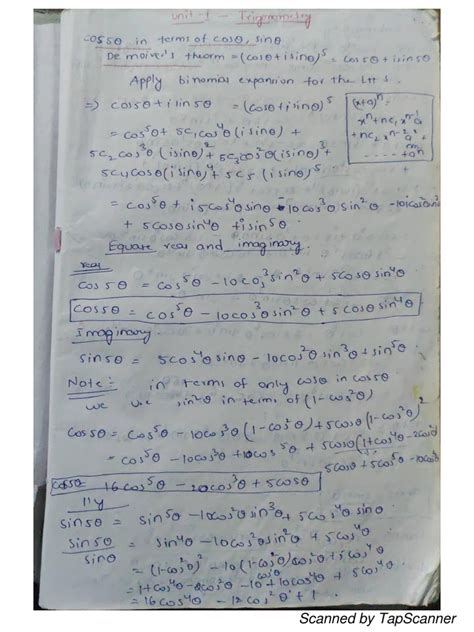 Unit-1 - Trignometry
cos5θ in terms of cosθ, sinθ
De moivre's theorm = (cosθ+isinθ)⁵ = cos5θ+isin5θ
Apply binomial expansion for the LHS.
(x+a)ⁿ
xⁿ+nc₁xⁿ⁻¹a
+nc₂xⁿ⁻²a²+
----- +aⁿ
⇒) cos5θ+isin5θ = (cosθ+isinθ)⁵
= cos⁵θ + 5c₁cos⁴θ(isinθ) +
5c₂cos³θ(isinθ)²+5c₃cos²θ(isinθ)³+
5c₄cosθ(isinθ)⁴+5c₅(isinθ)⁵
= cos⁵θ + i5cos⁴θsinθ -10cos³θsin²θ -10icos²θsin³θ
+ 5cosθsin⁴θ +isin⁵θ
Equate real and imaginary.
real
cos5θ = cos⁵θ -10cos³θsin²θ +5cosθsin⁴θ
cos5θ = cos⁵θ -10cos³θsin²θ +5cosθsin⁴θ
Imaginary
sin5θ = 5cos⁴θsinθ -10cos²θsin³θ+sin⁵θ
Note:- in terms of only cosθ in cos5θ
we use sin²θ in terms of (1-cos²θ)
cos5θ = cos⁵θ -10cos³θ(1-cos²θ)+5cosθ(1-cos²θ)²
= cos⁵θ -10cos³θ+10cos⁵θ+5cosθ(1+cos⁴θ-2cos²θ)
5cosθ+5cos⁵θ-10cos³θ
cos5θ = 16cos⁵θ -20cos³θ+5cosθ
11'y
sin5θ = sin⁵θ -10cos²θsin³θ+5cos⁴θsinθ
sin5θ/sinθ = sin⁴θ -10cos²θsin²θ+5cos⁴θ
= (1-cos²θ)² -10(1-cos²θ)cos²θ+5cos⁴θ
= 1+cos⁴θ-2cos²θ-10cos²θ+10cos⁴θ+5cos⁴θ
= 16cos⁴θ -12cos²θ+1.
Scanned by TapScanner